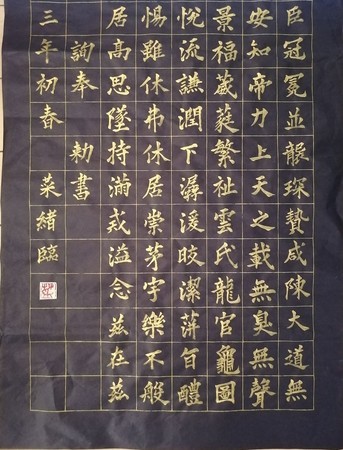 臣冠冕並襲琛贄咸陳大道無
安知帝力上天之載無臭無聲
景福葳蕤繁祉雲氏龍官龜圖
悅流謙潤下潺湲皎潔萍旨醴
惕雖休弗休居崇茅宇樂不般
居高思墜持滿戒溢念茲在茲
詢奉 勅書
三年初春 菜緒臨